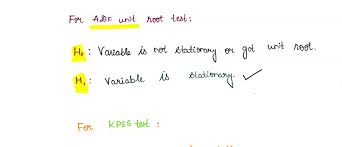 For ADF unit root test:
H₀: Variable is not stationary or got unit root.
H₁: Variable is stationary. ✓
For KPSS test: